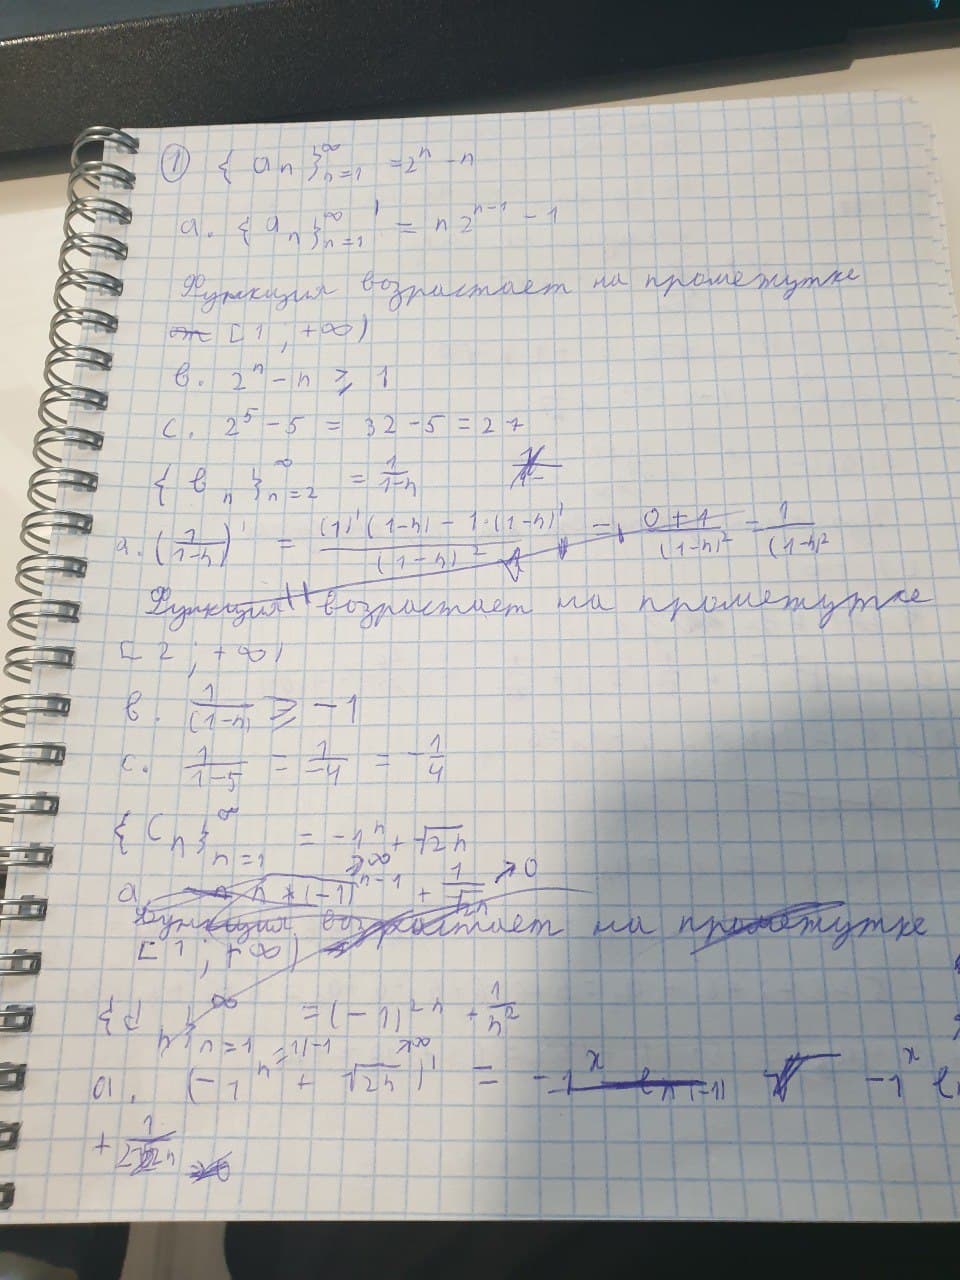 ① { a n }∞ n=1 = 2^n - n
a. { a n }∞ n=1 ' = n 2^(n-1) - 1
Функция возрастает на промежутке
[ 1 ; +∞)
в. 2^n - n ⩾ 1
c. 2^5 - 5 = 32 - 5 = 27
{ в n }∞ n=2 = 1/(1-n)
a. (1/(1-n))' = ((1)'(1-n) - 1·(1-n)')/(1-n)^2 = (0+1)/(1-n)^2 = 1/(1-n)^2
Функция возрастает на промежутке
[ 2 ; +∞)
в. 1/(1-n) ⩾ -1
c. 1/(1-5) = 1/-4 = -1/4
{ C n }∞ n=1 = -1^n + √2n
a. n*(-1)^(n-1) + 1/√2n > 0
Функция возрастает на промежутке
[ 1 ; +∞)
∞ n=1 = (-1)^(2n) + 1/n^2
a. (-1^n + √2n)' = -1^x ln(-1) -1^x
+ 1